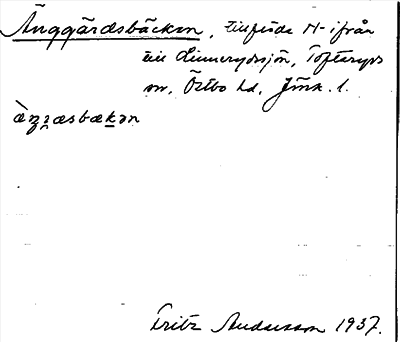 Änggärdsbäcken, tillflöde N-ifrån
till Linnerydssjön, Toftaryds
sn, Östbo hd, Jönk. l.
æŋɡæsbækən
Fritz Andersson 1937.